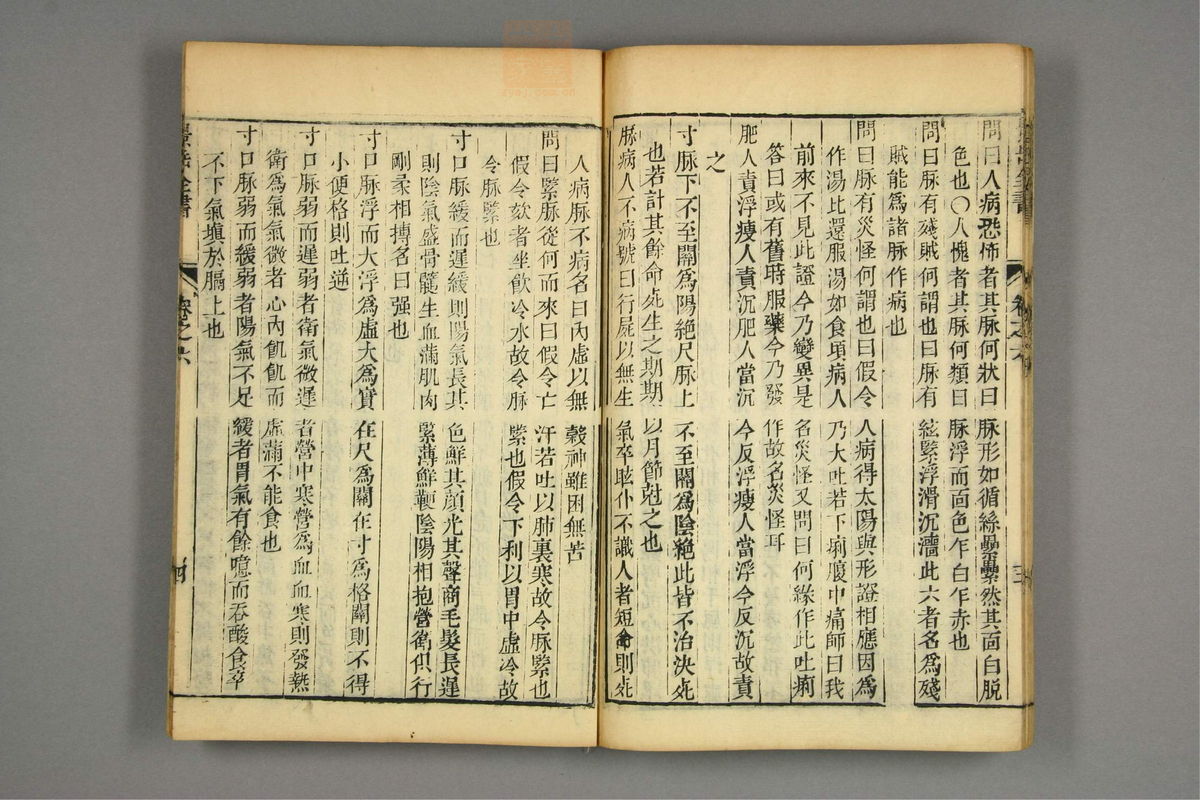 問曰人病恐怖者其脉何狀曰脉形如循絲纍纍然其面白脱
色也〇人愧者其脉何類曰脉浮而面色乍白乍赤也
問曰脉有殘賊何謂也曰脉有絃緊浮滑沉濇此六者名爲殘
賊能爲諸脉作病也
問曰脉有災怪何謂也曰假令人病得太陽與形證相應因爲
作湯比還服湯如食頃病人乃大吐若下痢腹中痛師曰我
前來不見此證今乃變異是名災怪又問曰何緣作此吐痢
答曰或有舊時服藥今乃發作故名災怪耳
肥人責浮瘦人責沉肥人當沉今反浮瘦人當浮今反沉故責
之
寸脉下不至關爲陽絶尺脉上不至關爲陰絶此皆不治決死
也若計其餘命死生之期期以月節尅之也
脉病人不病號曰行屍以無生氣卒眩仆不識人者短命則死
人病脉不病名曰內虛以無穀神雖困無苦
問曰緊脉從何而來曰假令亡汗若吐以肺裏寒故令脉緊也
假令欬者坐飲冷水故令脉緊也假令下利以胃中虛冷故
令脉緊也
寸口脉緩而遲緩則陽氣長其色鮮其顔光其聲商毛髮長遲
則陰氣盛骨髓生血滿肌肉緊薄鮮鞕陰陽相抱營衛俱行
剛柔相搏名曰强也
寸口脉浮而大浮爲虛大爲實在尺爲關在寸爲格關則不得
小便格則吐逆
寸口脉弱而遲弱者衛氣微遲者營中寒營爲血血寒則發熱
衛爲氣氣微者心內飢飢而虛滿不能食也
寸口脉弱而緩弱者陽氣不足緩者胃氣有餘噫而吞酸食卒
不下氣填於膈上也
景岳全書
卷之六